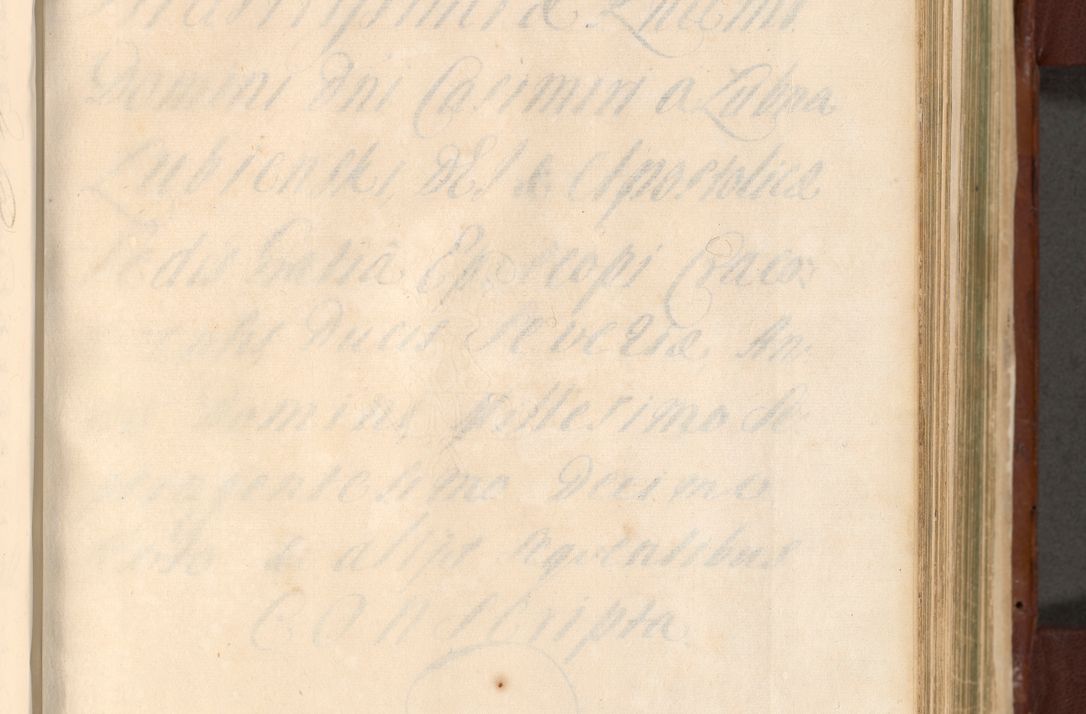 Domini Dni Casimiri a Lubna
Lubienski, DEI & Apostolicæ
Sedis Gratia Episcopi Craco-
Ducis Severiæ, An-
Domini Millesimo Se-
ptingentesimo Decimo
& alijs sequentibus
CONSCripta